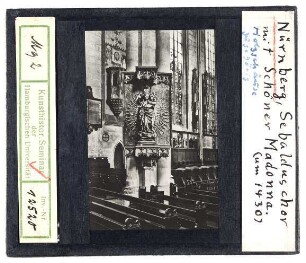 Mg 2
Kunsthistor. Seminar
der
Hamburgischen Universität
Inv.-Nr.
12528
Nürnberg, Sebalduschor
mit Schöner Madonna.
(um 1430)